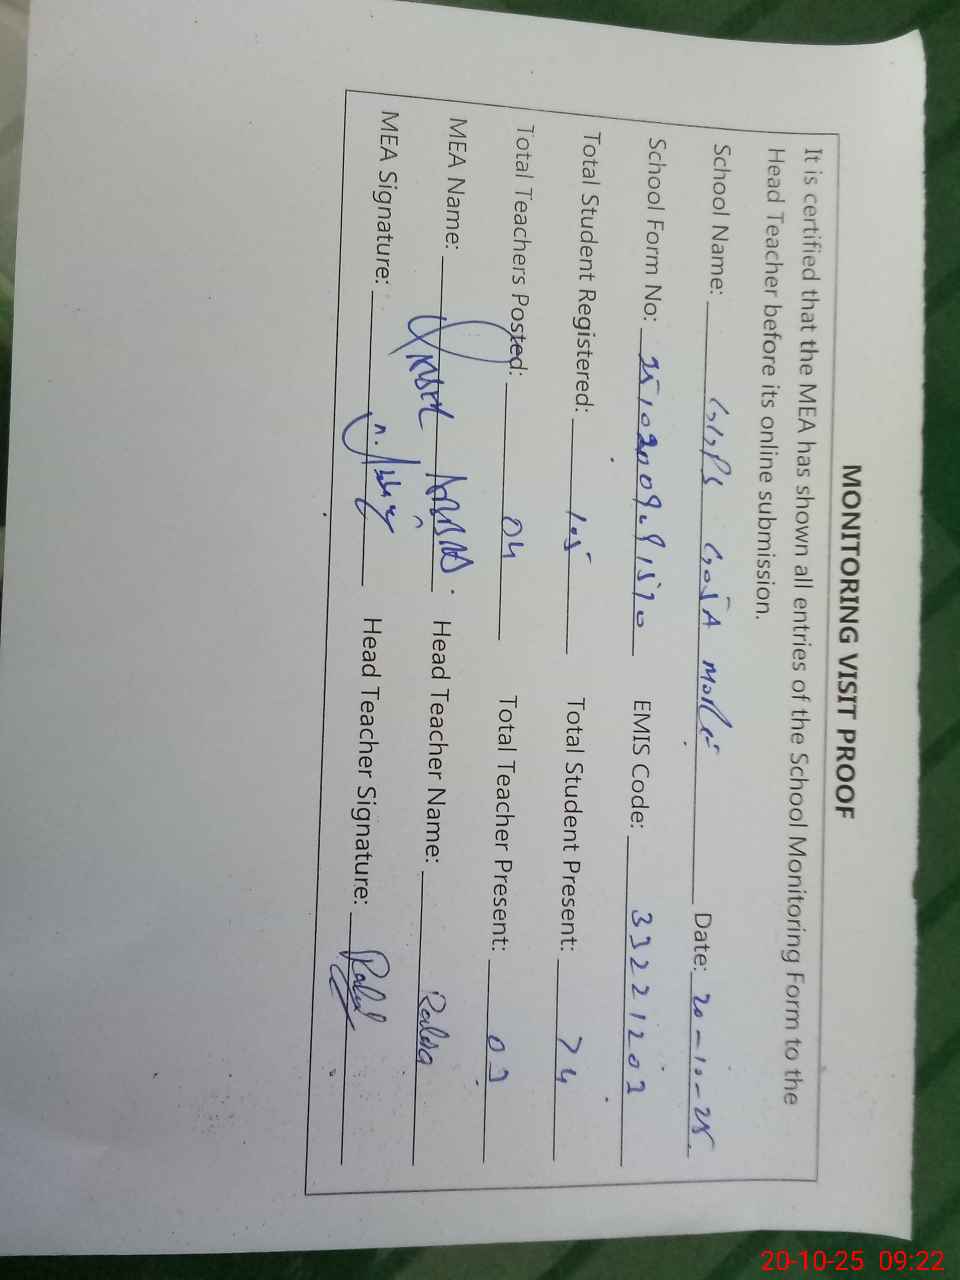 MONITORING VISIT PROOF
It is certified that the MEA has shown all entries of the School Monitoring Form to the
Head Teacher before its online submission.
School Name: GGPS Date: 20-10-25
School Form No: EMIS Code:
Total Student Registered: 105 Total Student Present: 74
Total Teachers Posted: 04 Total Teacher Present: 03
MEA Name: Head Teacher Name:
MEA Signature: Head Teacher Signature:
20-10-25 09:22